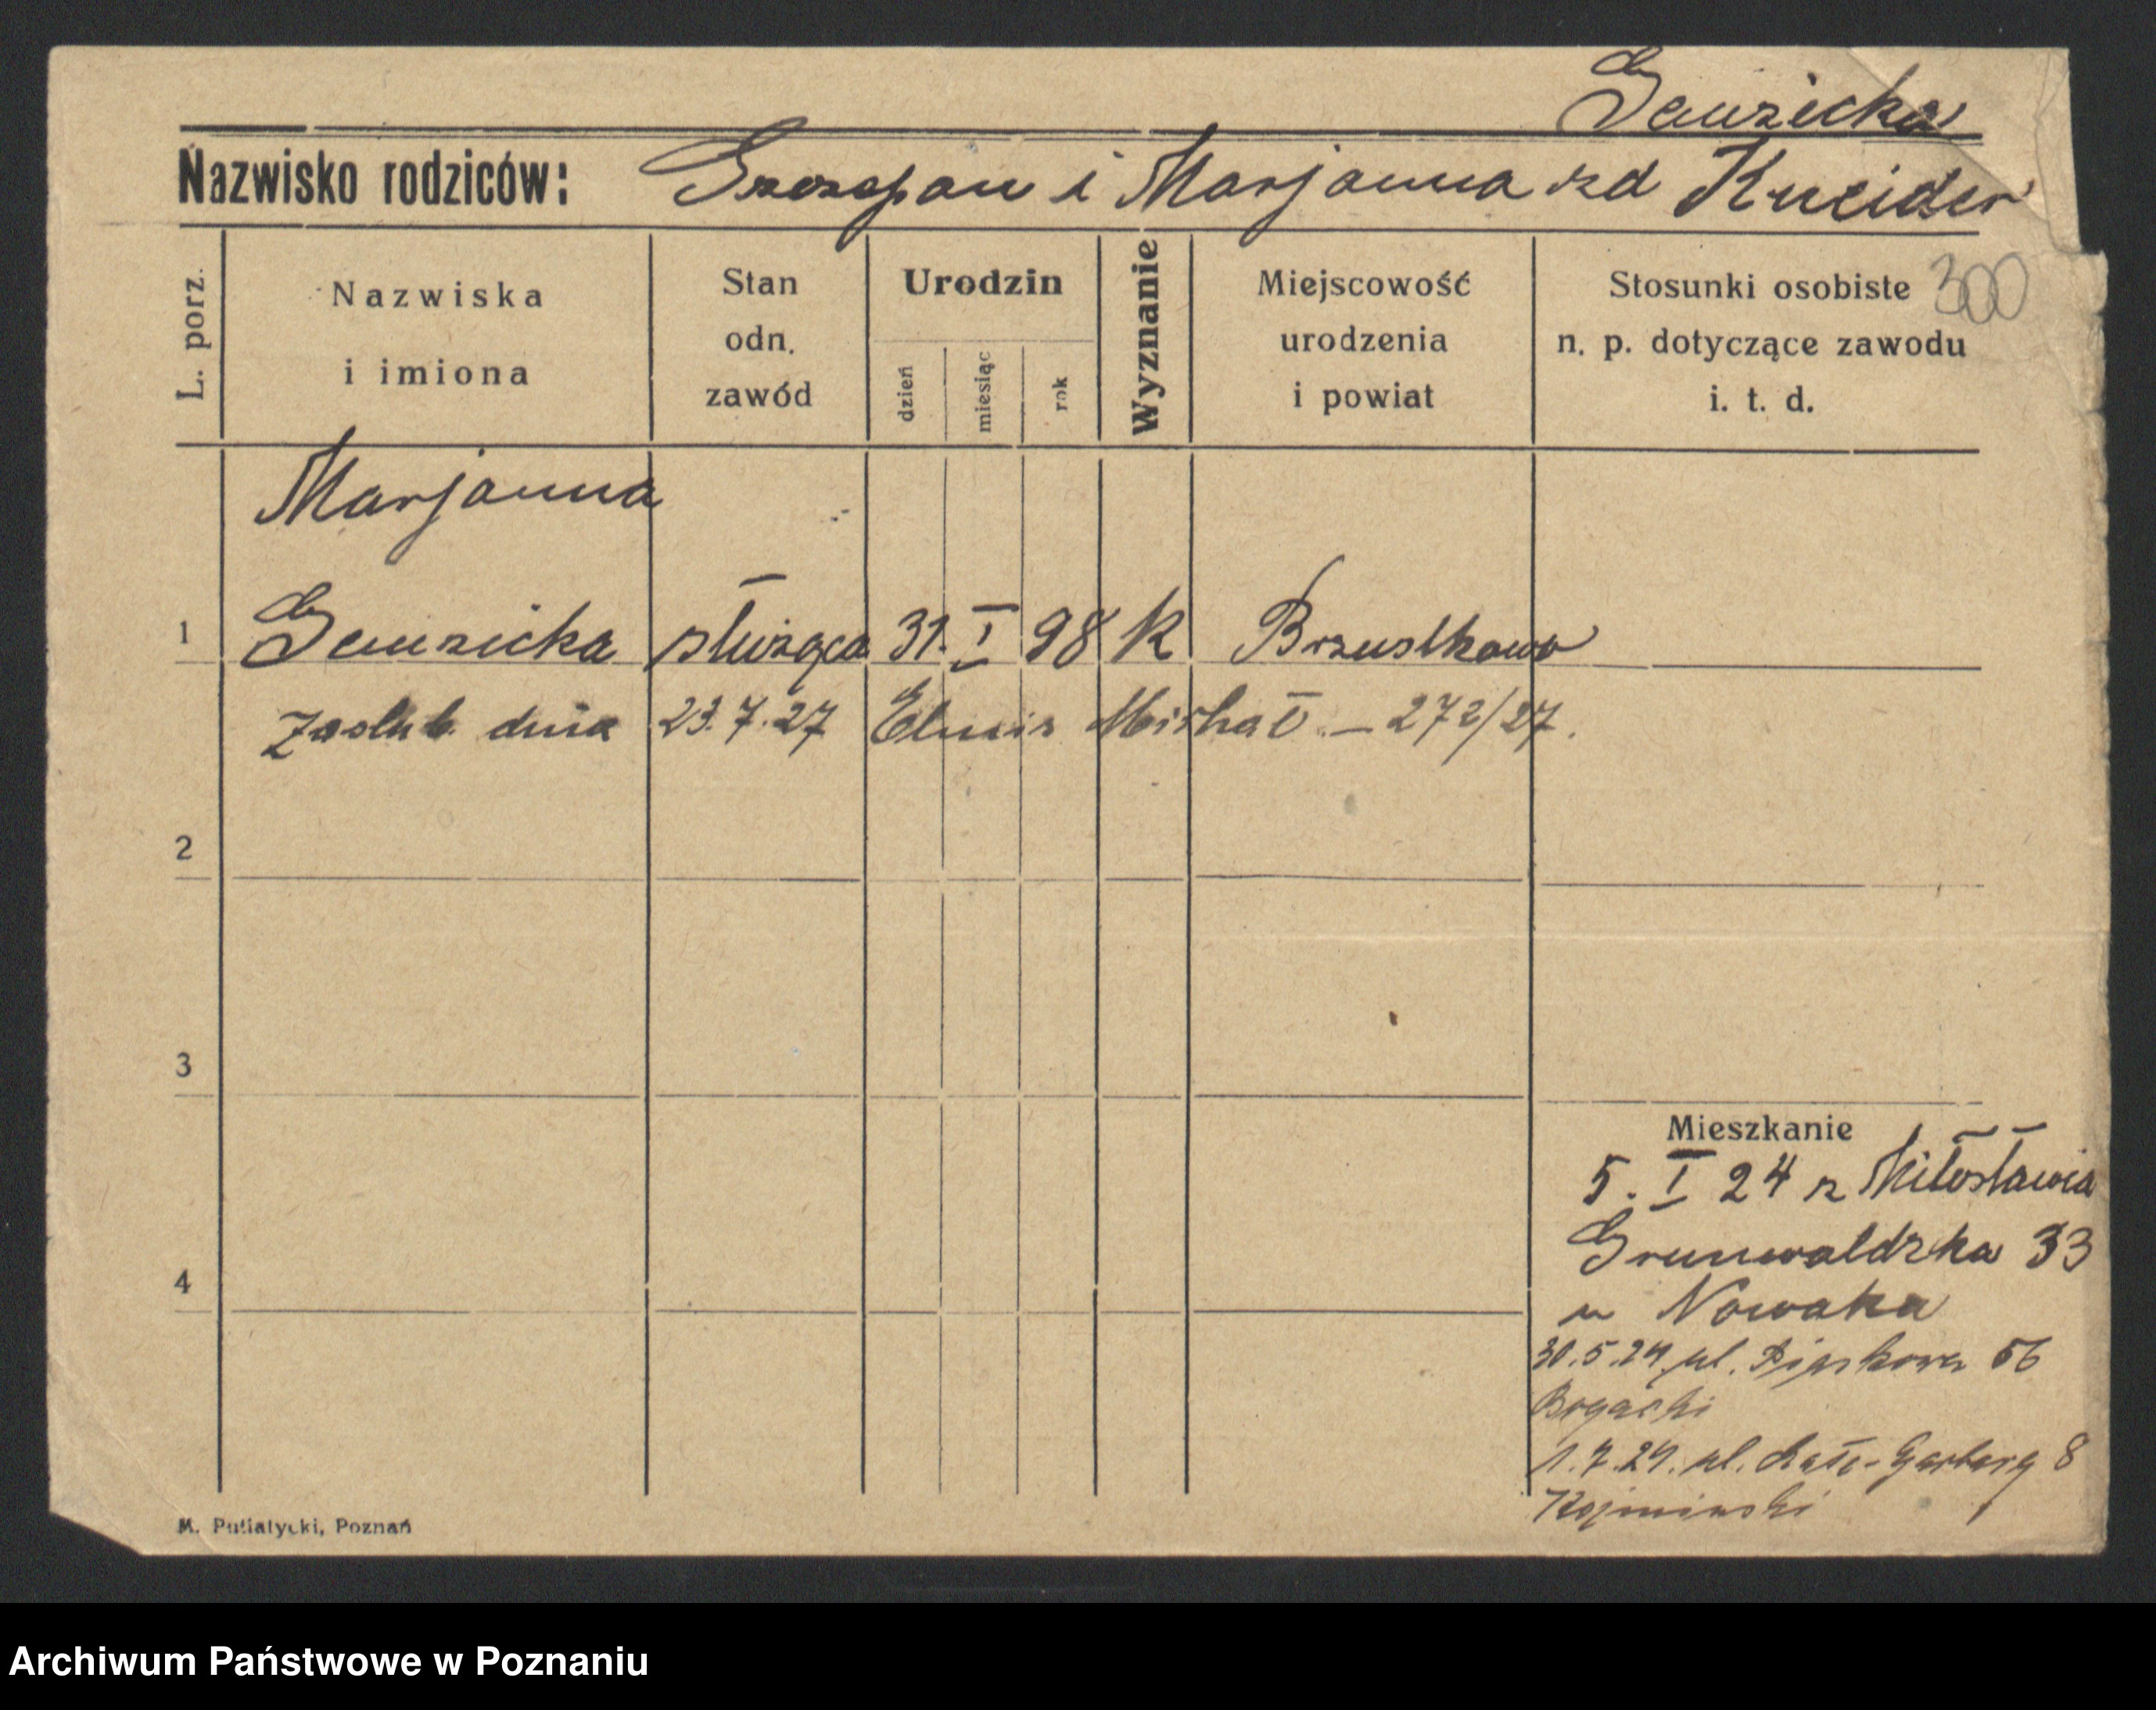 Gensicka
Nazwisko rodziców: Szczepan i Marjanna zd Kneider
300
L. porz.
Nazwiska
i imiona
Stan
odn.
zawód
Urodzin
dzień
miesiąc
rok
Wyznanie
Miejscowość
urodzenia
i powiat
Stosunki osobiste
n. p. dotyczące zawodu
i. t. d.
Marjanna
1 służąca 31. I 98 K
zaślub. dnia 23.7.27 Michał - 272/27.
2
3
4
Mieszkanie
5. I 24 z Miłosławia
Grunwaldzka 33
u Nowaka
30.5.24 ul. Piaskowa 56
Bogacki
1.7.24. ul. Małe-Garbary 8
M. Putiatycki, Poznań
Archiwum Państwowe w Poznaniu